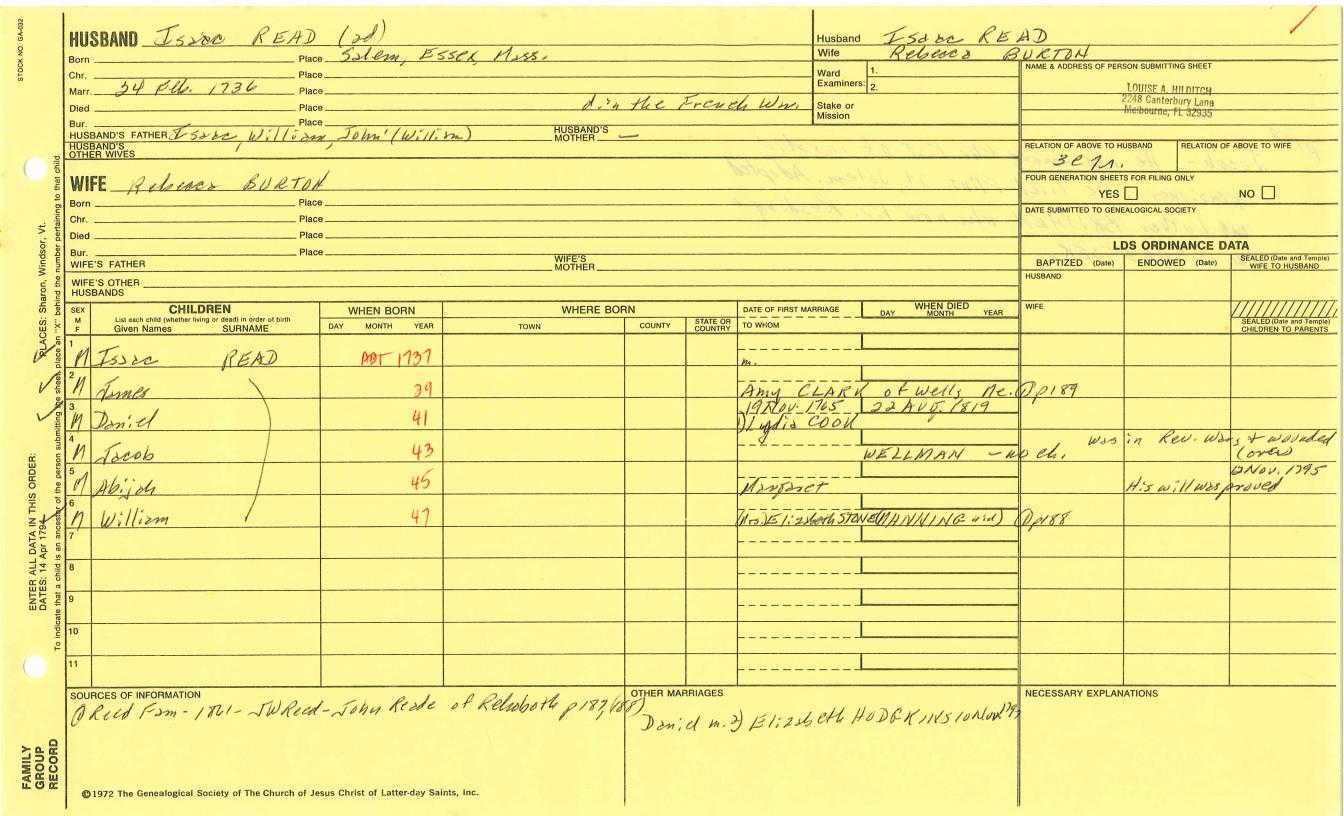 STOCK NO. GA-032
HUSBAND Isaac READ (2d)
Born Place Salem, Essex, Mass.
Chr. Place
Marr. 24 Feb. 1736 Place
Died Place d. in the French War.
Bur. Place
HUSBAND'S FATHER Isaac, William, John' (William) HUSBAND'S MOTHER —
HUSBAND'S OTHER WIVES
Husband Isaac READ
Wife Rebecca BURTON
Ward Examiners: 1. 2.
Stake or Mission
NAME & ADDRESS OF PERSON SUBMITTING SHEET
LOUISE A. HILDITCH
2248 Canterbury Lane
Melbourne, FL 32935
RELATION OF ABOVE TO HUSBAND RELATION OF ABOVE TO WIFE
FOUR GENERATION SHEETS FOR FILING ONLY
YES NO
DATE SUBMITTED TO GENEALOGICAL SOCIETY
WIFE Rebecca BURTON
Born Place
Chr. Place
Died Place
Bur. Place
WIFE'S FATHER WIFE'S MOTHER
WIFE'S OTHER HUSBANDS
LDS ORDINANCE DATA
BAPTIZED (Date) ENDOWED (Date) SEALED (Date and Temple) WIFE TO HUSBAND
HUSBAND
WIFE
SEALED (Date and Temple) CHILDREN TO PARENTS
SEX M F CHILDREN WHEN BORN WHERE BORN DATE OF FIRST MARRIAGE WHEN DIED
List each child (whether living or dead) in order of birth DAY MONTH YEAR
Given Names SURNAME DAY MONTH YEAR TOWN COUNTY STATE OR COUNTRY TO WHOM
1 M Isaac READ ABT 1737 m.
2 M James 39 Amy CLARK of Wells, Me. ① p189
3 19 Nov. 1765 22 AUG. 1819
M Daniel 41 1) Lydia COOK
4 was in Rev. War, & wounded
M Jacob 43 WELLMAN - no ch. (over)
5 Nov. 1795
M Abijah 45 Margaret His will was proved
6 M William 47 Mrs. Elizabeth STONE (MANNING wid) ① p188
7
8
9
10
11
SOURCES OF INFORMATION
① Reed Fam - 1861 - JW Reed - John Reade of Rehoboth p187, 188)
OTHER MARRIAGES
Daniel m. 2) Elizabeth HODGKINS 10 Nov.
NECESSARY EXPLANATIONS
©1972 The Genealogical Society of The Church of Jesus Christ of Latter-day Saints, Inc.
FAMILY GROUP RECORD
ENTER ALL DATA IN THIS ORDER:
DATES: 14 Apr 1794
PLACES: Sharon, Windsor, Vt.
To indicate that a child is an ancestor of the person submitting the sheet, place an "X" behind the number pertaining to that child.